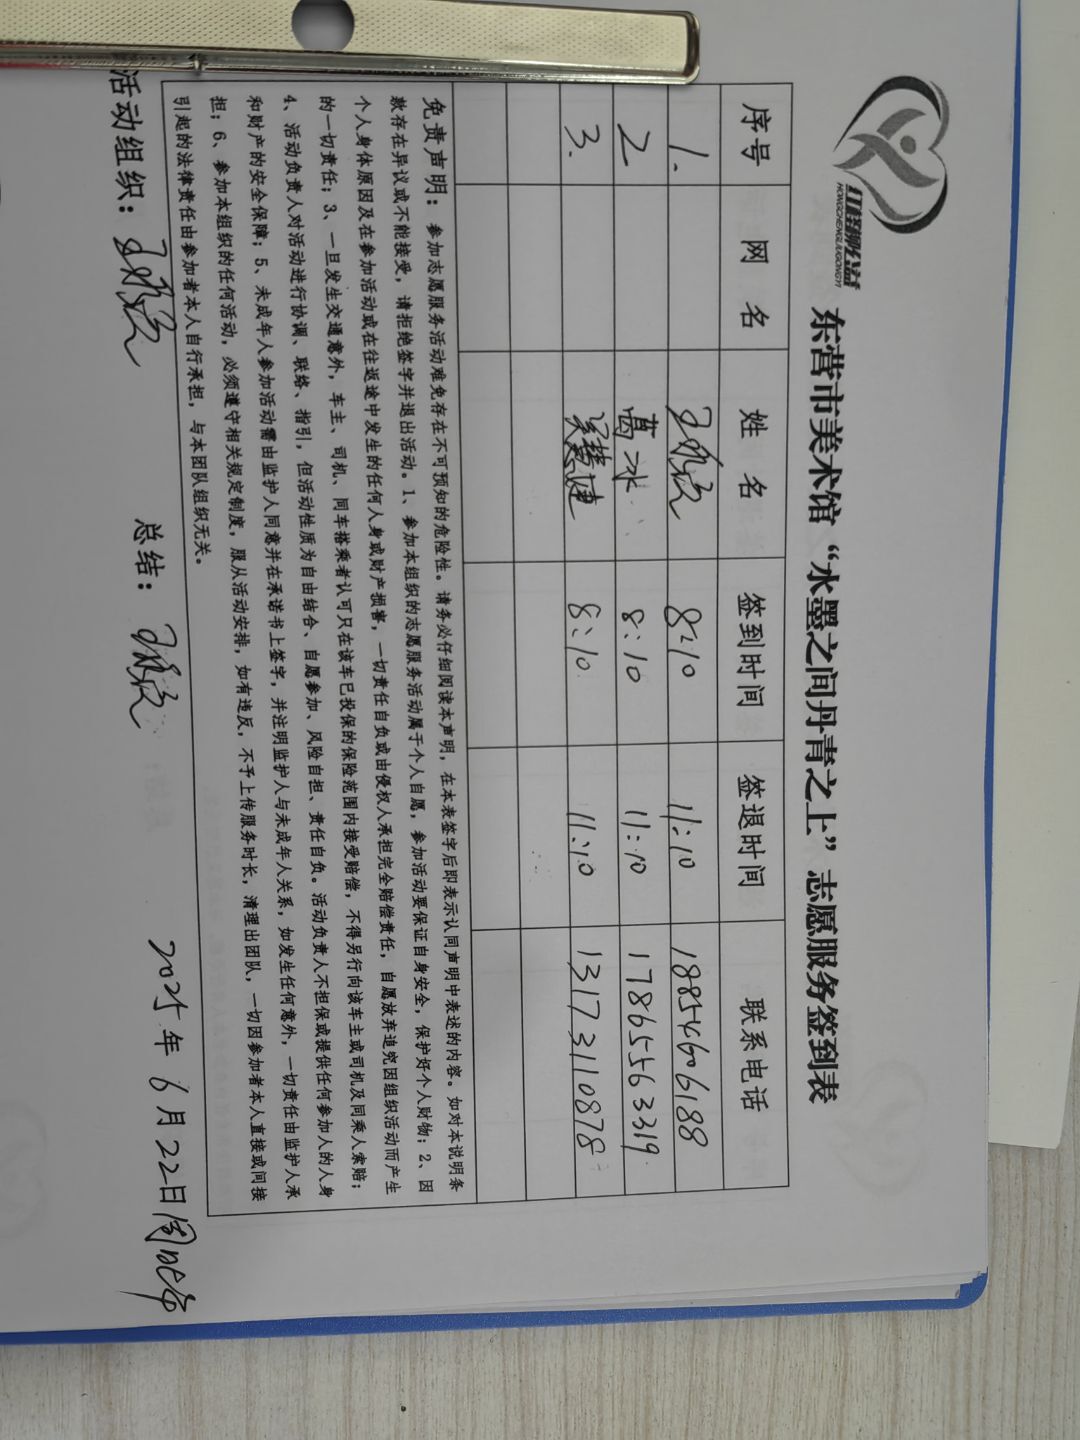 红柽柳公益
HONGCHENGLIUGONGYI
东营市美术馆“水墨之间丹青之上”志愿服务签到表
序号 网 名 姓 名 签到时间 签退时间 联系电话
1. 8:10 11:10 18854606188
2 葛冰 8:10 11:10 17865563319
3. 吴慧建 8:10 11:10 13173110878
免责声明：参加志愿服务活动难免存在不可预知的危险性。请务必仔细阅读本声明，在本表签字后即表示认同声明中表述的内容。如对本说明条
款存在异议或不能接受，请拒绝签字并退出活动。1、参加本组织的志愿服务活动属于个人自愿，参加活动要保证自身安全，保护好个人财物；2、因
个人身体原因及在参加活动或在往返途中发生的任何人身或财产损害，一切责任自负或由侵权人承担完全赔偿责任，自愿放弃追究因组织活动而产生
的一切责任；3、一旦发生交通意外，车主、司机、同车搭乘者认可只在该车已投保的保险范围内接受赔偿，不得另行向该车主或司机及同乘人索赔；
4、活动负责人对活动进行协调、联络、指引，但活动性质为自由结合、自愿参加、风险自担、责任自负。活动负责人不担保或提供任何参加人的人身
和财产的安全保障；5、未成年人参加活动需由监护人同意并在承诺书上签字，并注明监护人与未成年人关系，如发生任何意外，一切责任由监护人承
担；6、参加本组织的任何活动，必须遵守相关规定制度，服从活动安排，如有违反，不予上传服务时长，清理出团队，一切因参加者本人直接或间接
引起的法律责任由参加者本人自行承担，与本团队组织无关。
活动组织： 总结： 2025年6月22日周日上午